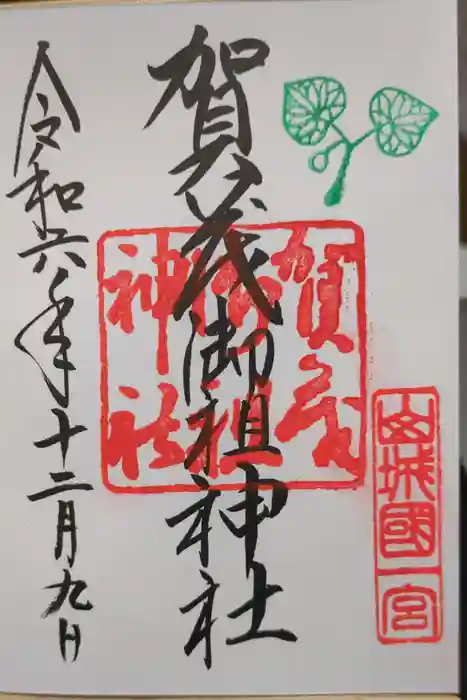 山城國一宮
賀茂御祖神社
賀茂
御祖
神社
令和六年十二月九日